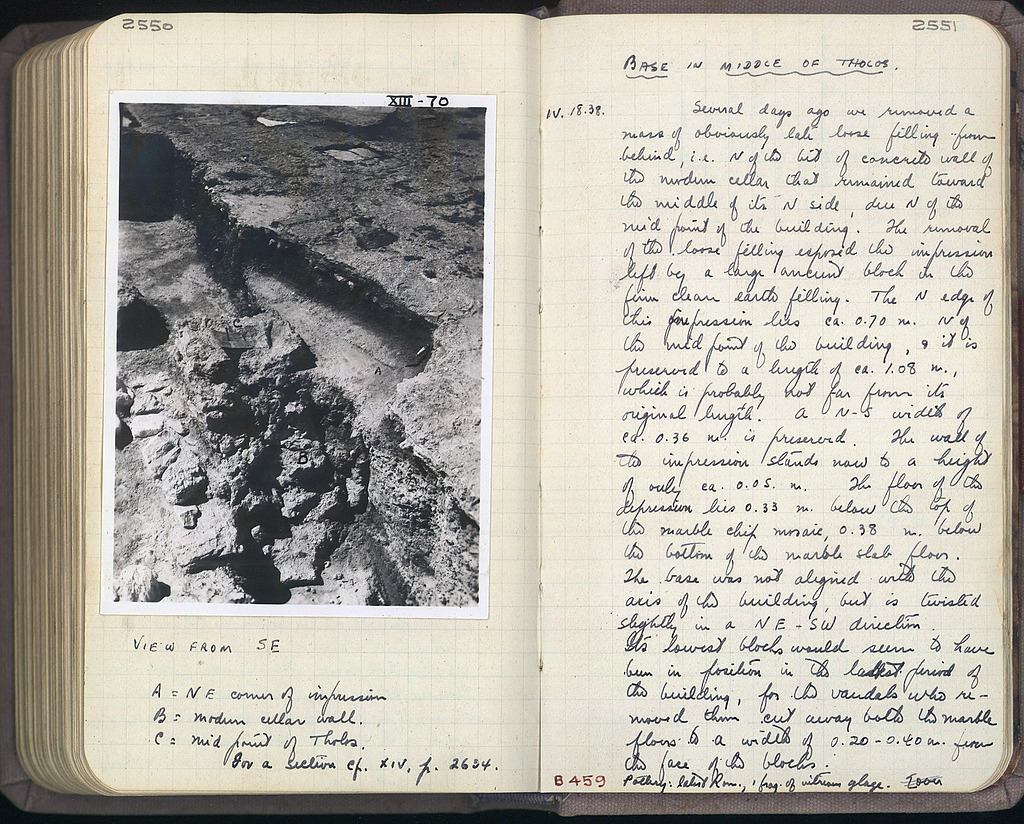 2550
XIII - 70
C
A
B
VIEW FROM SE
A = NE corner of impression
B = modern cellar wall.
C = mid point of Tholos.
For a section cf. XIV, p. 2634.
2551
BASE IN MIDDLE OF THOLOS.
IV. 18.38. Several days ago we removed a
mass of obviously late loose filling from
behind, i.e. N of the bit of concrete wall of
the modern cellar that remained toward
the middle of its N side, due N of the
mid point of the building. The removal
of the loose filling exposed the impression
left by a large ancient block in the
firm clean earth filling. The N edge of
this impression lies ca. 0.70 m. N of
the mid point of the building, & it is
preserved to a length of ca. 1.08 m.,
which is probably not far from its
original length. A N-S width of
ca. 0.36 m. is preserved. The wall of
the impression stands now to a height
of only ca. 0.05. m. The floor of the
depression lies 0.33 m. below the top of
the marble chip mosaic, 0.38 m. below
the bottom of the marble slab floor.
The base was not aligned with the
axis of the building, but is twisted
slightly in a NE-SW direction.
Its lowest blocks would seem to have
been in position in the latest period of
the building, for the vandals who re-
moved them cut away both the marble
floors to a width of 0.20-0.40 m. from
the face of the blocks.
B 459 Pottery: latest Rom., 1 frag. of vitreous glaze.